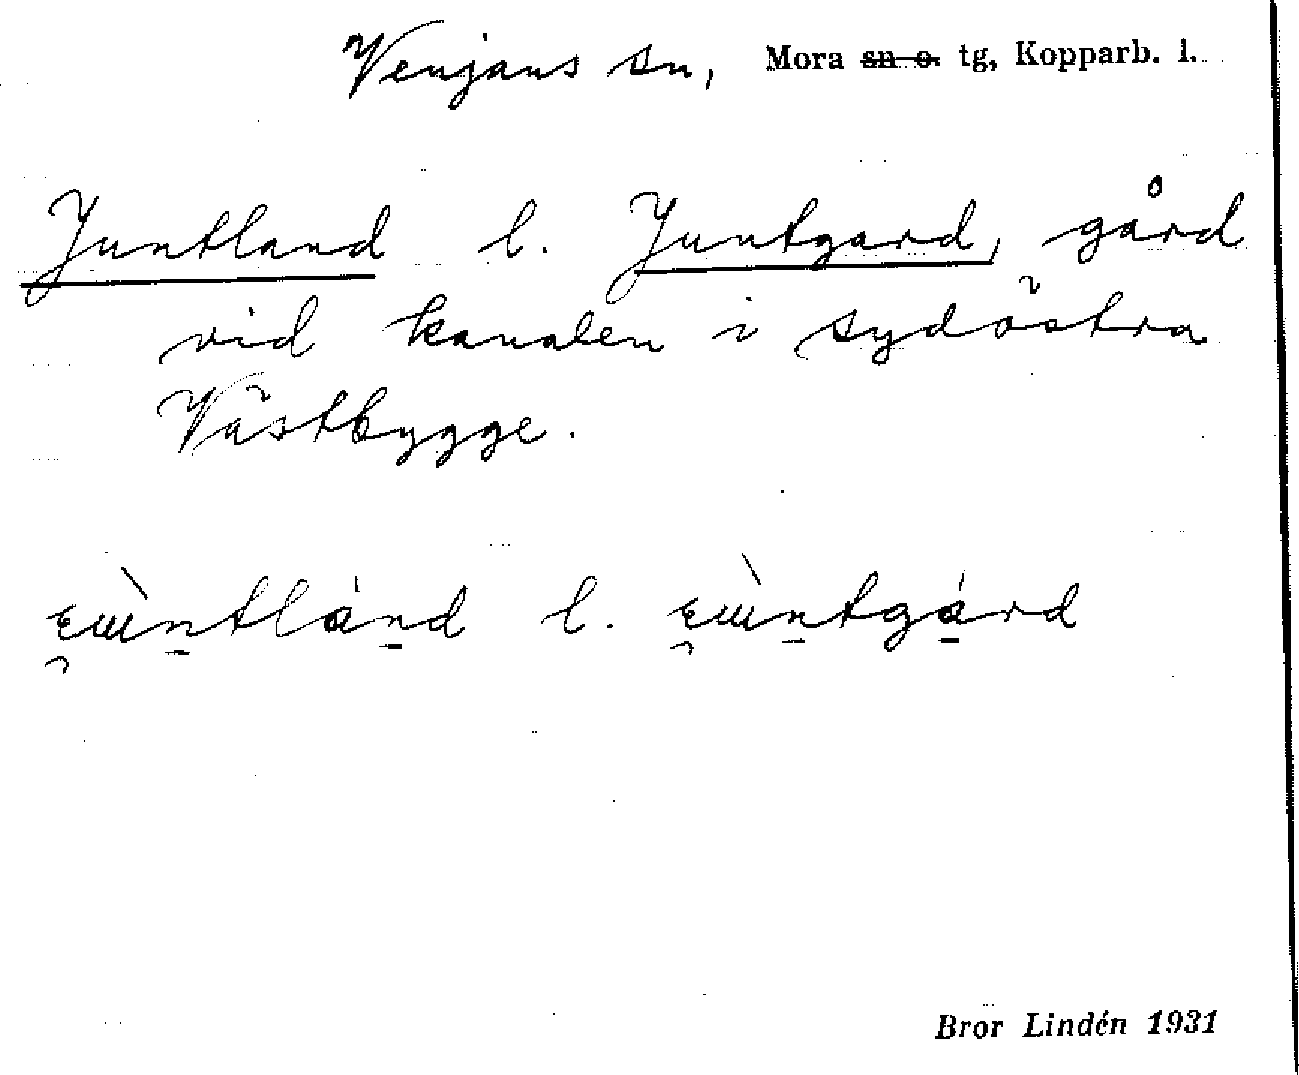 Venjans sn, Mora sn o. tg, Kopparb. l.
Juntland l. Juntgard, gård
vid kanalen i sydöstra
Västbygge.
l.
Bror Lindén 1931